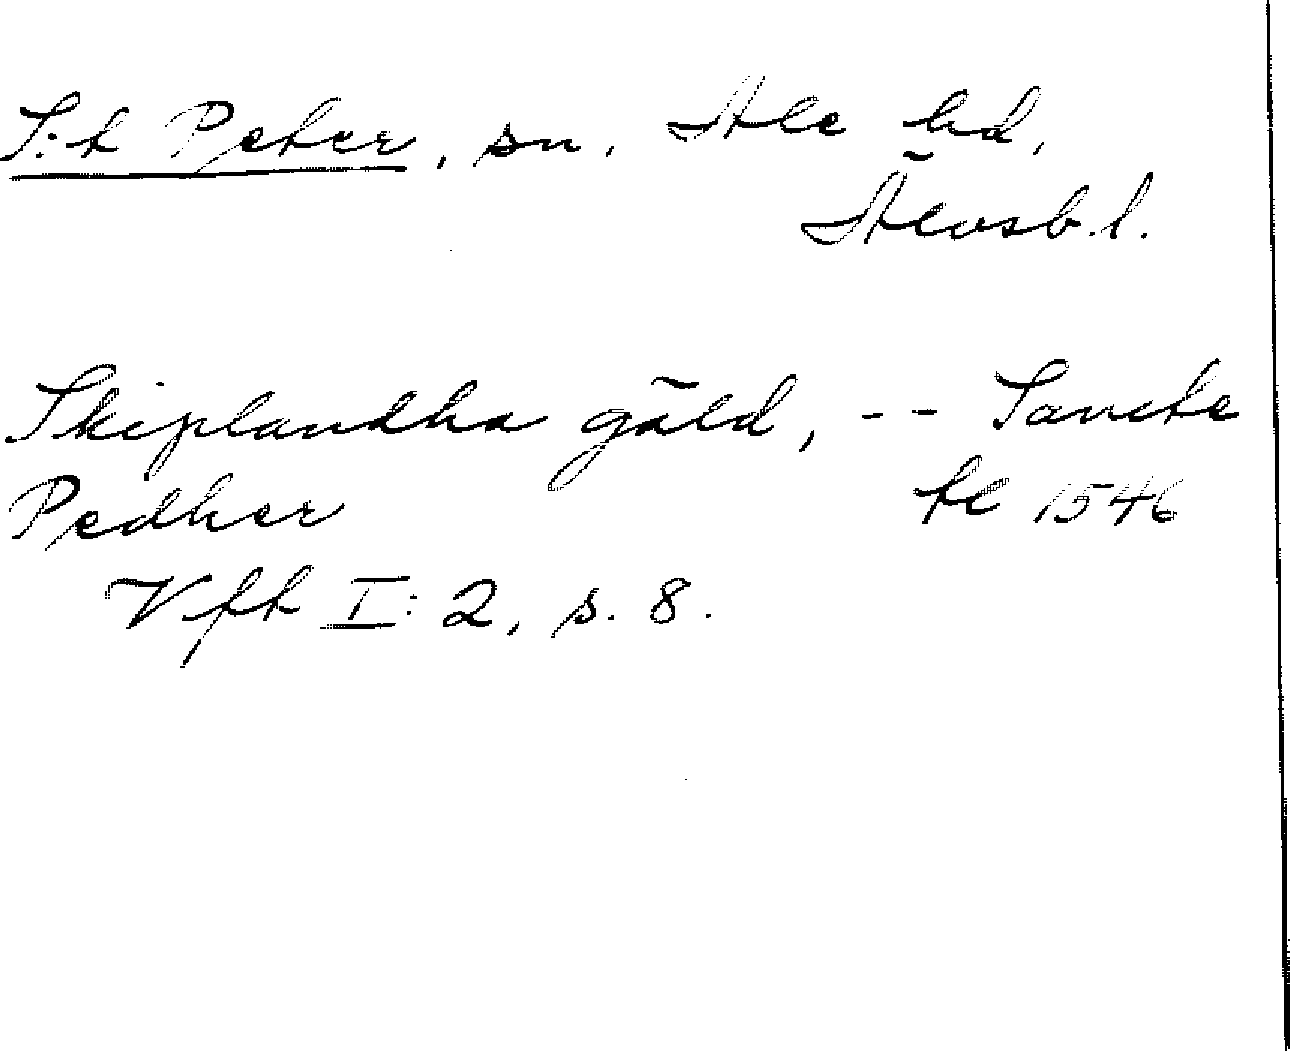 S:t Peter, sn, Ale hd,
Älvsb.l.
Skiplandha gäld, -- Sancte
Pedher te 1546
Vft I:2, s. 8.